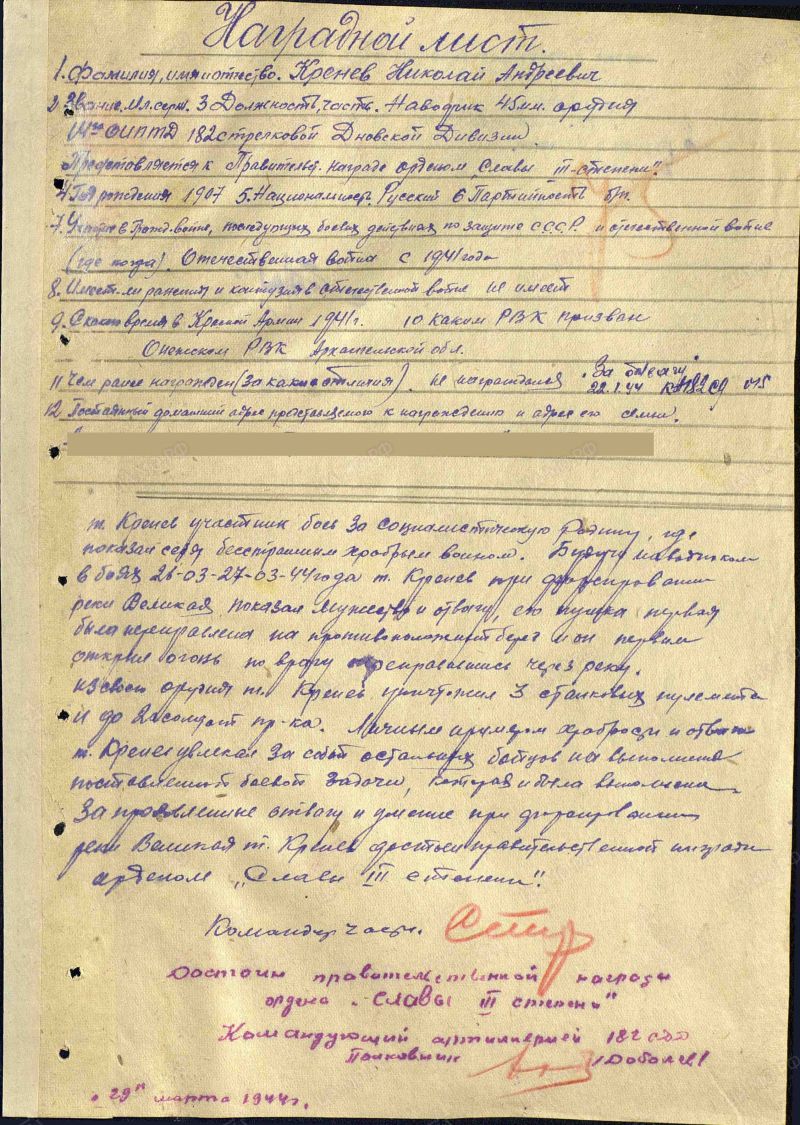 Наградной лист.
1. Фамилия, имя и отчество. Кренев Николай Андреевич
2 Звание. Мл. серж. 3 Должность, часть. Наводчик 45 мм. орудия
ОИПТД 182 стрелковой Дновской Дивизии
Представляется к Правительств. награде орденом "Славы III-степени".
4 Год рождения 1907 5. Национальность. Русский 6 Партийность б/п.
7. Участие в Гражд. войне, последующих боевых действиях по защите С.С.С.Р. и отечественной войне
(где когда). Отечественная война с 1941 года
8. Имеет-ли ранения и контузия в отечественной войне не имеет
9. С какого времени в Красной Армии 1941 г. 10 каким РВК призван
Онежском РВК Архангельской обл.
11 Чем ранее награжден (за какие отличия). не награждался "За отвагу"
22.1.44 182 сд 015
12 Постоянный домашний адрес представляемого к награждению и адрес его семьи.
т. Кренев участник боев за социалистическую Родину, где
показал себя бесстрашным храбрым воином. Будучи наводчиком
в боях 26-03-27-03-44 года т. Кренев при форсировании
реки Великая показал мужество и отвагу, его пушка первая
была переправлена на противоположный берег и он первым
открыл огонь по врагу переправившись через реку.
из своего орудия т. Кренев уничтожил 3 станковых пулемета
и до 20 солдат пр-ка. Личным примером храбрости и отваги
т. Кренев увлекал за собой остальных бойцов на выполнение
поставленной боевой задачи, которая и была выполнена.
За проявленные отвагу и умение при форсировании
реки Великая т. Кренев достоен правительственной награды
орденом "Славы III степени".
Командир части.
Достоин правительственной награды
ордена "Славы III степени"
Командующий артиллерией 182 сдд
Полковник
"29" марта 1944 г.